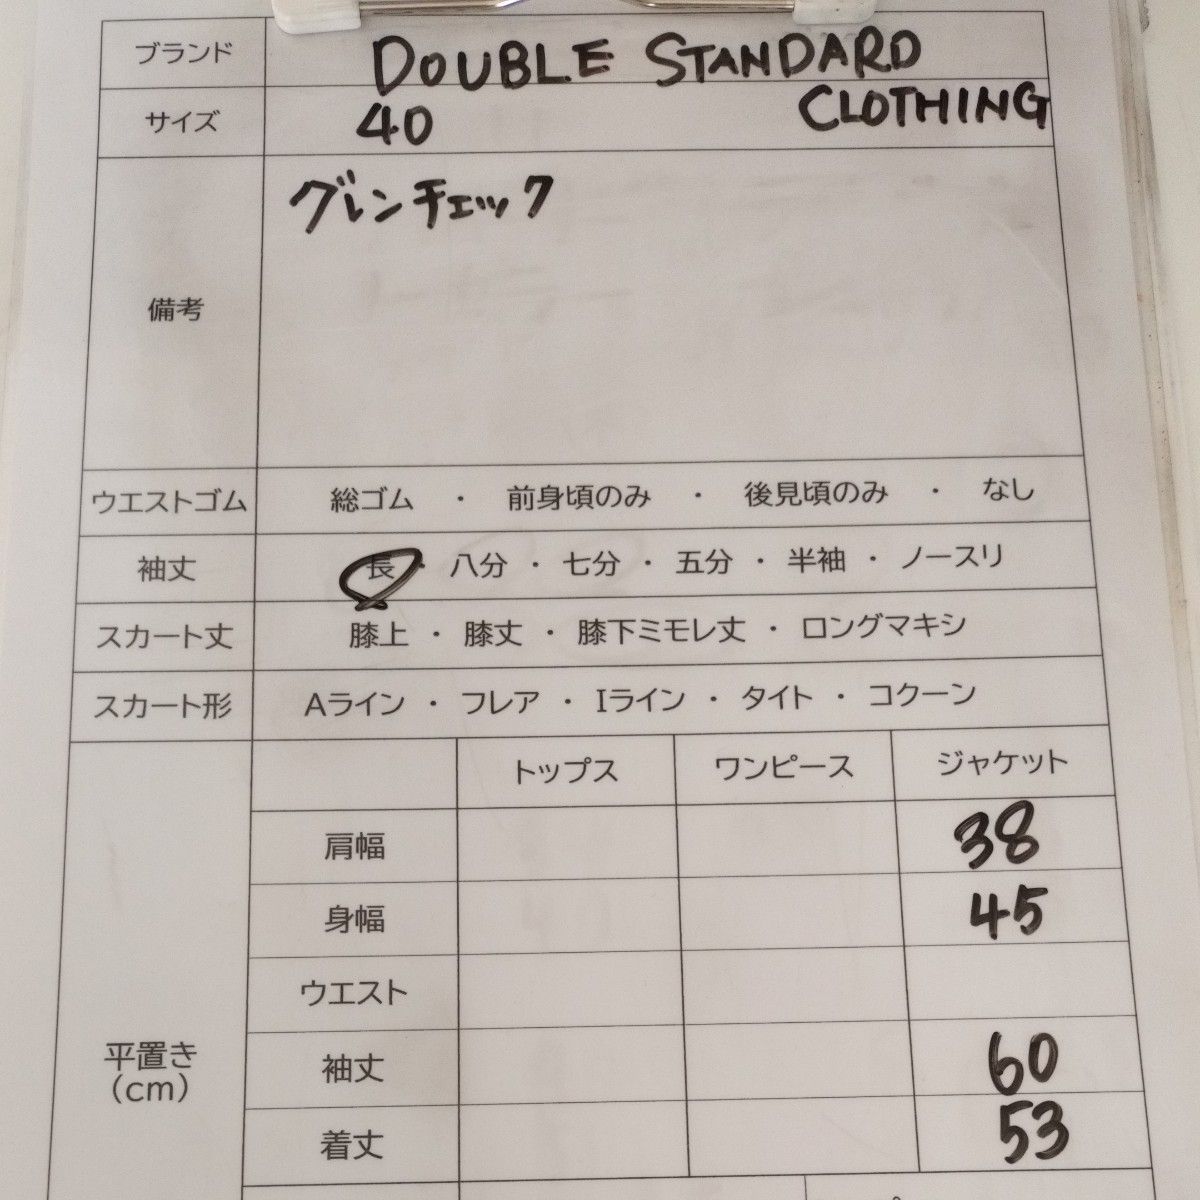 ブランド DOUBLE STANDARD
CLOTHING
サイズ 40
備考 グレンチェック
ウエストゴム 総ゴム ・ 前身頃のみ ・ 後見頃のみ ・ なし
袖丈 長 ・ 八分 ・ 七分 ・ 五分 ・ 半袖 ・ ノースリ
スカート丈 膝上 ・ 膝丈 ・ 膝下ミモレ丈 ・ ロングマキシ
スカート形 Aライン ・ フレア ・ Iライン ・ タイト ・ コクーン
平置き
(cm)
トップス ワンピース ジャケット
肩幅 38
身幅 45
ウエスト
袖丈 60
着丈 53